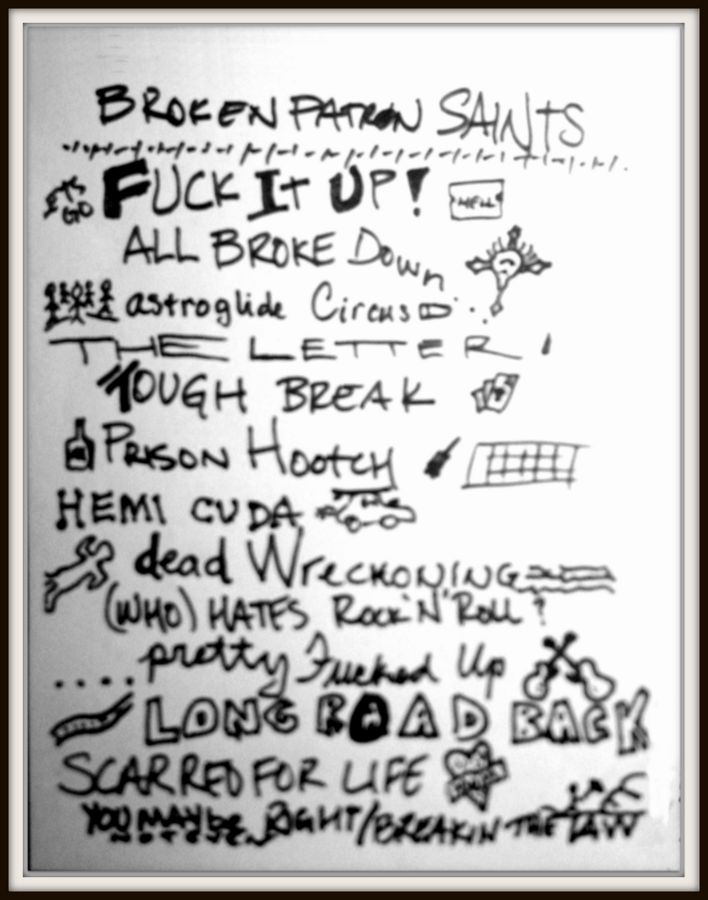 BROKEN PATRON SAINTS
LET'S GO FUCK IT UP! HELL
ALL BROKE DOWN
astroglide Circus
THE LETTER!
TOUGH BREAK
PRISON HOOTCH
HEMI CUDA
dead WRECKONING
(WHO) HATES ROCK 'N' ROLL?
....pretty Fucked Up
LONG ROAD BACK
SCARRED FOR LIFE
YOU MAY BE RIGHT/BREAKIN THE LAW